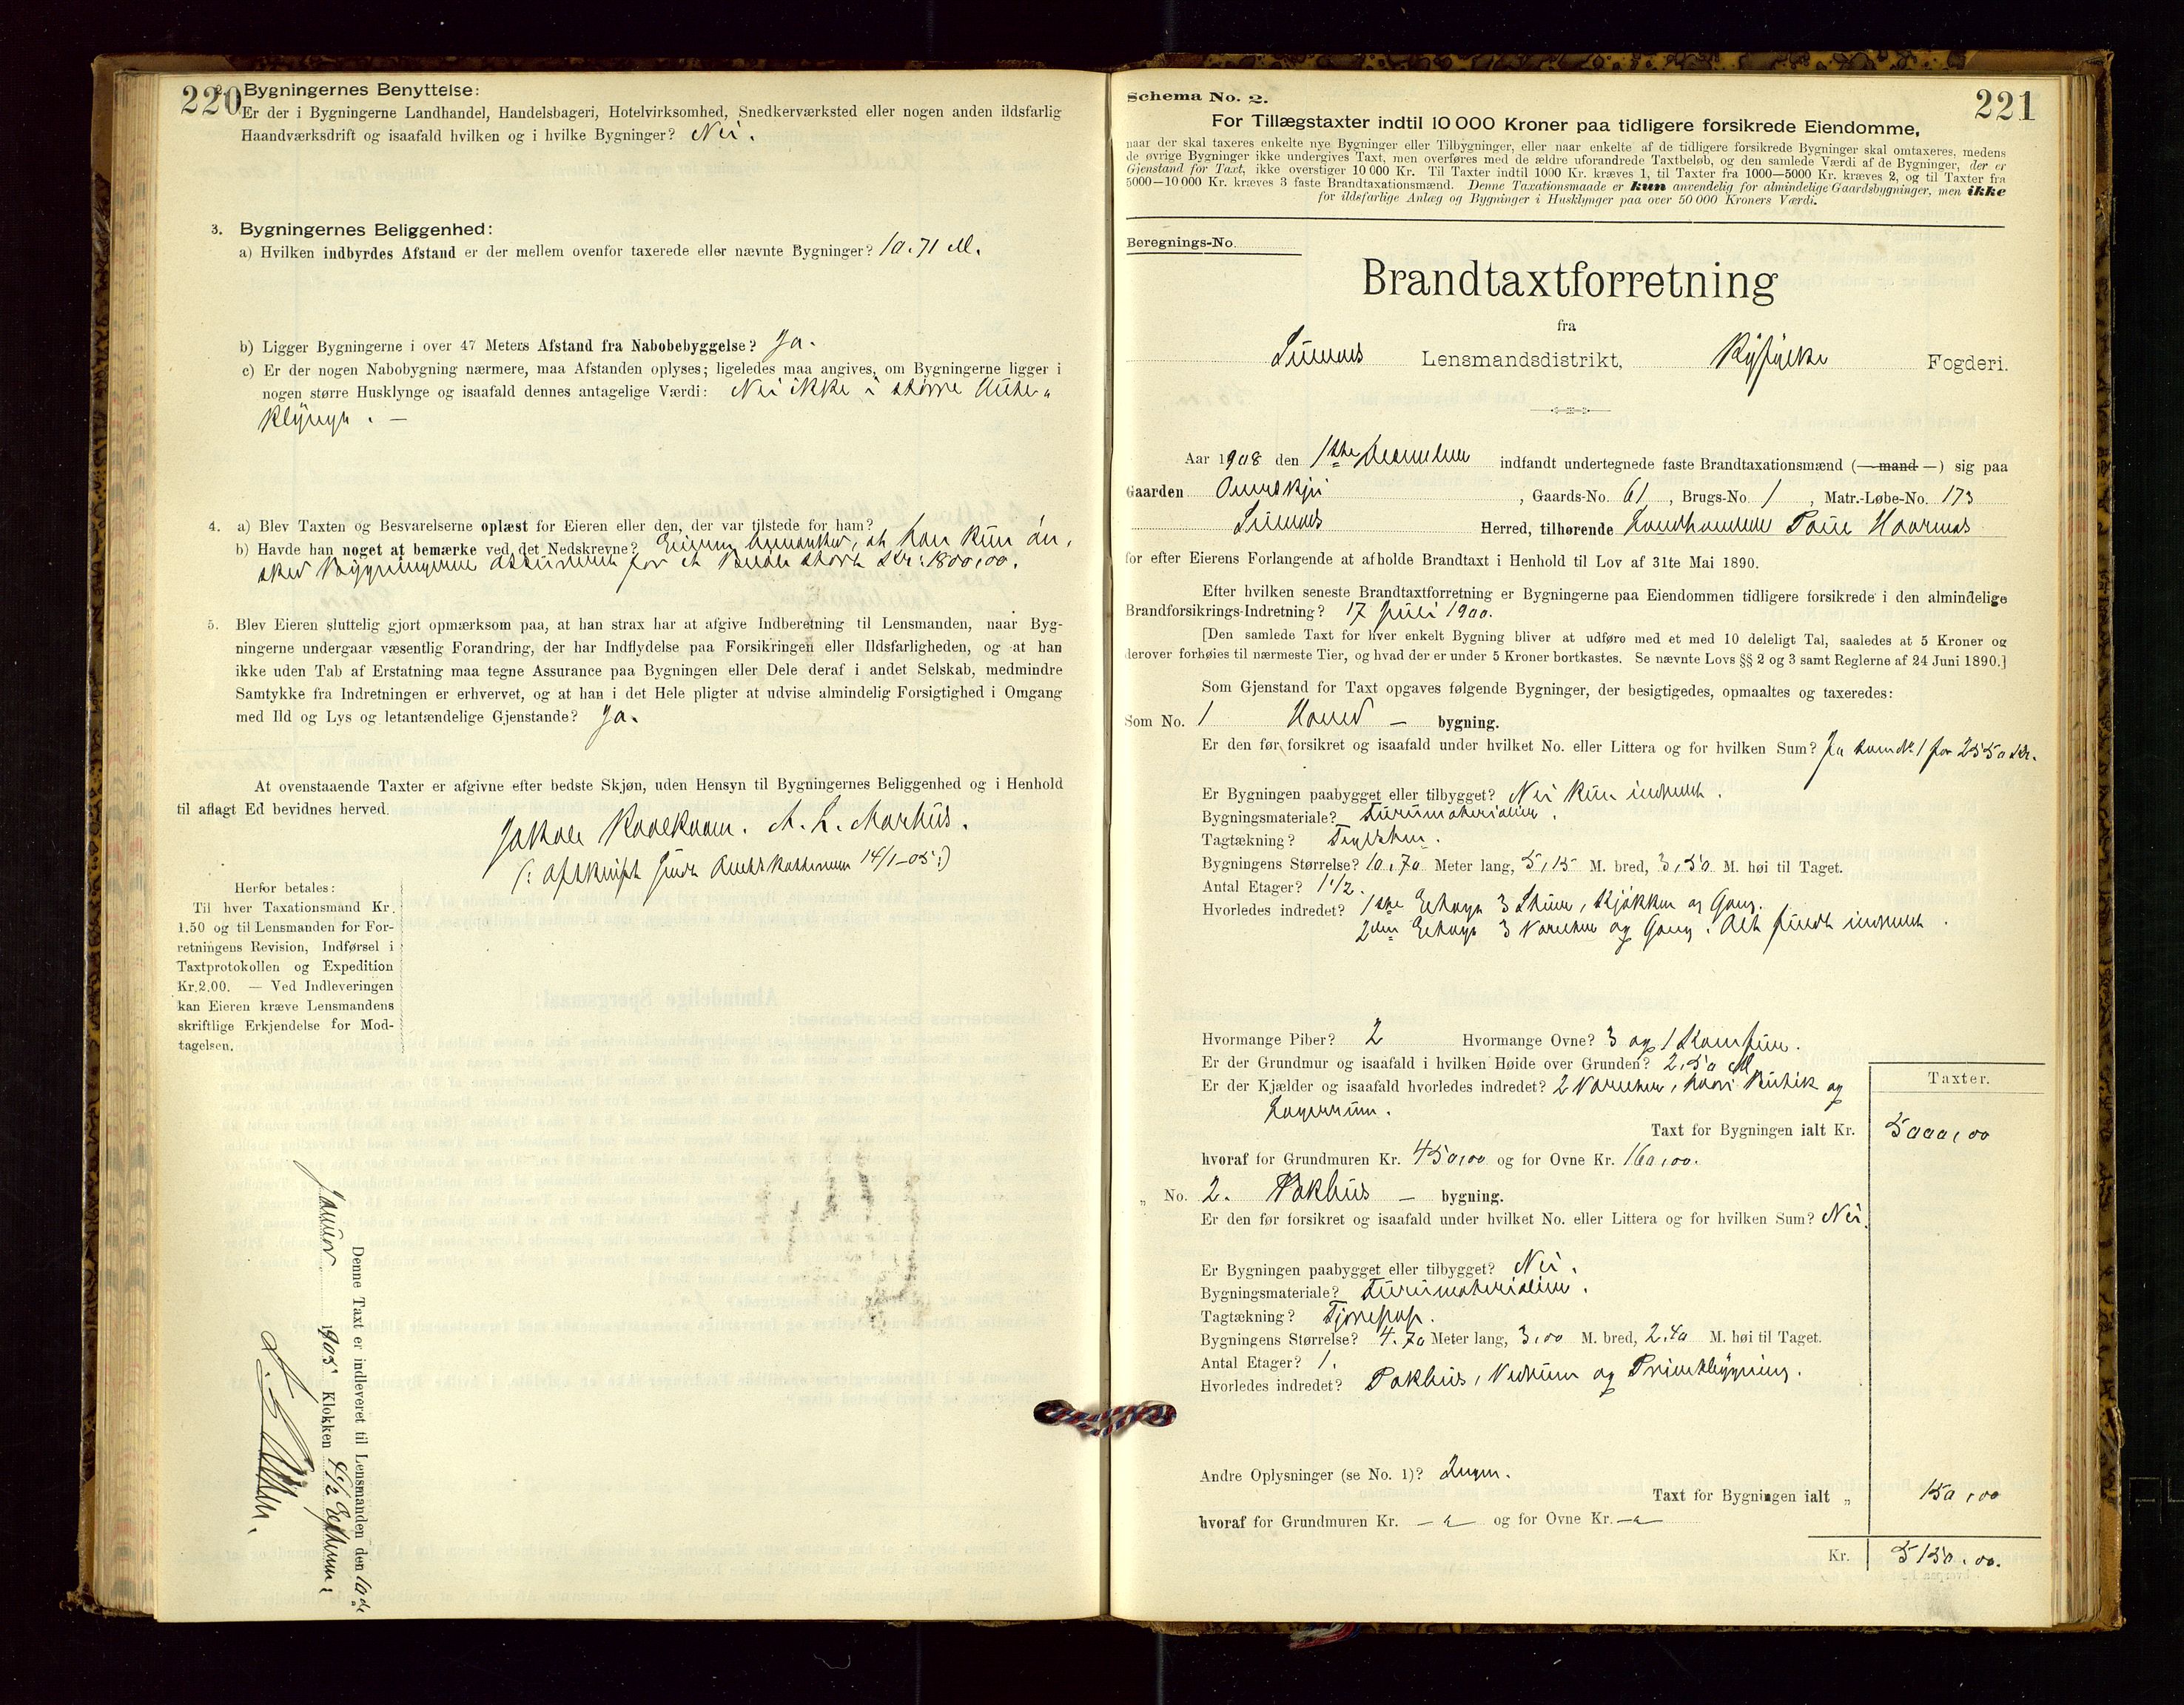 220
Bygningernes Benyttelse:
Er der i Bygningerne Landhandel, Handelsbageri, Hotelvirksomhed, Snedkerværksted eller nogen anden ildsfarlig
Haandværksdrift og isaafald hvilken og i hvilke Bygninger? Nei.
3. Bygningernes Beliggenhed:
a) Hvilken indbyrdes Afstand er der mellem ovenfor taxerede eller nævnte Bygninger? 10.71 M.
b) Ligger Bygningerne i over 47 Meters Afstand fra Nabobebyggelse? Ja.
c) Er der nogen Nabobygning nærmere, maa Afstanden oplyses; ligeledes maa angives, om Bygningerne ligger i
nogen større Husklynge og isaafald dennes antagelige Værdi: Nei ikke i større Huse-
klynge. —
4. a) Blev Taxten og Besvarelserne oplæst for Eieren eller den, der var tilstede for ham?
b) Havde han noget at bemærke ved det Nedskrevne? Eieren bemærker, at han kun øn-
sker Bygningerne assureret for et Beløb stort Kr: 1800,00.
5. Blev Eieren sluttelig gjort opmærksom paa, at han strax har at afgive Indberetning til Lensmanden, naar Byg-
ningerne undergaar væsentlig Forandring, der har Indflydelse paa Forsikringen eller Ildsfarligheden, og at han
ikke uden Tab af Erstatning maa tegne Assurance paa Bygningen eller Dele deraf i andet Selskab, medmindre
Samtykke fra Indretningen er erhvervet, og at han i det Hele pligter at udvise almindelig Forsigtighed i Omgang
med Ild og Lys og letantændelige Gjenstande? Ja.
At ovenstaaende Taxter er afgivne efter bedste Skjøn, uden Hensyn til Bygningernes Beliggenhed og i Henhold
til aflagt Ed bevidnes herved.
(: Afskrift sendt Amtskassereren 14/1-05:)
Herfor betales:
Til hver Taxationsmand Kr.
1.50 og til Lensmanden for For-
retningens Revision, Indførsel i
Taxtprotokollen og Expedition
Kr. 2.00. — Ved Indleveringen
kan Eieren kræve Lensmandens
skriftlige Erkjendelse for Mod-
tagelsen.
Denne Taxt er indleveret til Lensmanden den 10de
Januar 1905 Klokken 4 1/2 Efterm:
221
Schema No. 2.
For Tillægstaxter indtil 10 000 Kroner paa tidligere forsikrede Eiendomme,
naar der skal taxeres enkelte nye Bygninger eller Tilbygninger, eller naar enkelte af de tidligere forsikrede Bygninger skal omtaxeres, medens
de øvrige Bygninger ikke undergives Taxt, men overføres med de ældre uforandrede Taxtbeløb, og den samlede Værdi af de Bygninger, der er
Gjenstand for Taxt, ikke overstiger 10 000 Kr. Til Taxter indtil 1000 Kr. kræves 1, til Taxter fra 1000—5000 Kr. kræves 2, og til Taxter fra
5000—10 000 Kr. kræves 3 faste Brandtaxationsmænd. Denne Taxationsmaade er kun anvendelig for almindelige Gaardsbygninger, men ikke
for ildsfarlige Anlæg og Bygninger i Husklynger paa over 50 000 Kroners Værdi.
Beregnings-No.
Brandtaxtforretning
fra
Lensmandsdistrikt, Ryfylke Fogderi.
Aar 1908 den 1ste December indfandt undertegnede faste Brandtaxationsmænd (— mand —) sig paa
Gaarden , Gaards-No. 61, Brugs-No. 1, Matr.-Løbe-No. 173
Herred, tilhørende Landhandler
for efter Eierens Forlangende at afholde Brandtaxt i Henhold til Lov af 31te Mai 1890.
Efter hvilken seneste Brandtaxtforretning er Bygningerne paa Eiendommen tidligere forsikrede i den almindelige
Brandforsikrings-Indretning? 17 Juli 1900.
[Den samlede Taxt for hver enkelt Bygning bliver at udføre med et med 10 deleligt Tal, saaledes at 5 Kroner og
derover forhøies til nærmeste Tier, og hvad der er under 5 Kroner bortkastes. Se nævnte Lovs §§ 2 og 3 samt Reglerne af 24 Juni 1890.]
Som Gjenstand for Taxt opgaves følgende Bygninger, der besigtigedes, opmaaltes og taxeredes:
Som No. 1 Hoved — bygning.
Er den før forsikret og isaafald under hvilket No. eller Littera og for hvilken Sum? Ja som No 1 for 2550 Kr.
Er Bygningen paabygget eller tilbygget? Nei kun indredet.
Bygningsmateriale? Furumaterialier.
Tagtækning? Teglsten.
Bygningens Størrelse? 10,70 Meter lang, 5,15 M. bred, 3,50 M. høi til Taget.
Antal Etager? 1 1/2.
Hvorledes indredet? 1ste Etage 3 Stuer, Kjøkken og Gang.
2den Etage 3 Værelser og Gang. Alt fuldt indredet.
Hvormange Piber? 2 Hvormange Ovne? 3 og 1 Komfur.
Er der Grundmur og isaafald i hvilken Høide over Grunden? 2,50 M
Er der Kjælder og isaafald hvorledes indredet? 2 Værelser, hvori Butik og
Lagerrum.
Taxter.
Taxt for Bygningen ialt Kr. 5000,00
hvoraf for Grundmuren Kr. 450,00 og for Ovne Kr. 160,00.
„ No. 2. Pakhus — bygning.
Er den før forsikret og isaafald under hvilket No. eller Littera og for hvilken Sum? Nei.
Er Bygningen paabygget eller tilbygget? Nei.
Bygningsmateriale? Furumaterialier.
Tagtækning? Tjærepap.
Bygningens Størrelse? 4.70 Meter lang, 3,00 M. bred, 2.40 M. høi til Taget.
Antal Etager? 1.
Hvorledes indredet? Pakhus, Vedrum og
Andre Oplysninger (se No. 1)? Ingen.
Taxt for Bygningen ialt „ 150,00
hvoraf for Grundmuren Kr. — og for Ovne Kr. —
Kr. 5150,00.